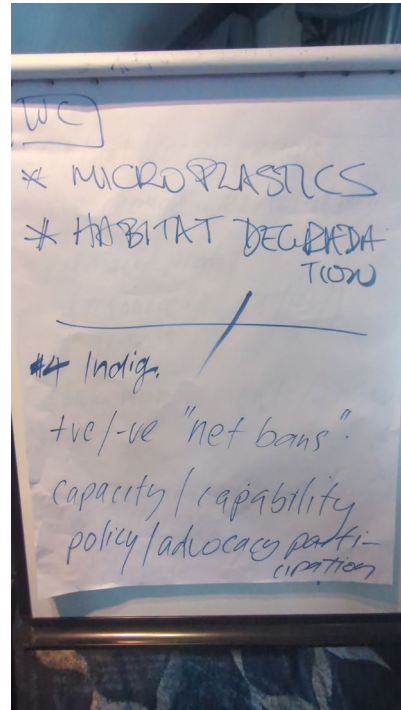 WC
* MICROPLASTICS
* HABITAT DEGRADA-
TION
#4 Indig.
+ve/-ve "net bans".
capacity / capability
policy/advocacy parti-
cipation